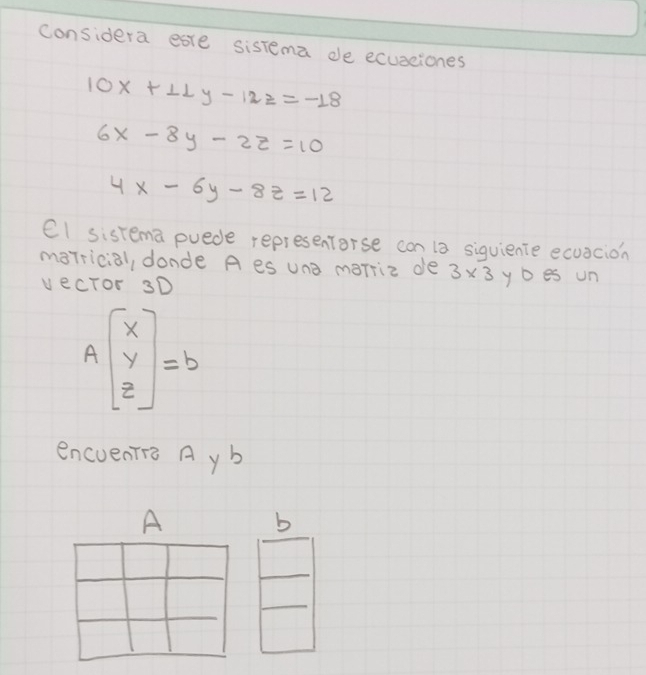 Considera este sistema de ecuaciones
10x + 11y - 12z = -18
6x - 8y - 2z = 10
4x - 6y - 8z = 12
El sistema puede representarse con la siguiente ecuación
matricial, donde A es una matriz de 3x3 y b es un
vector 3D
A [x y z] = b
encuentra A y b
A b